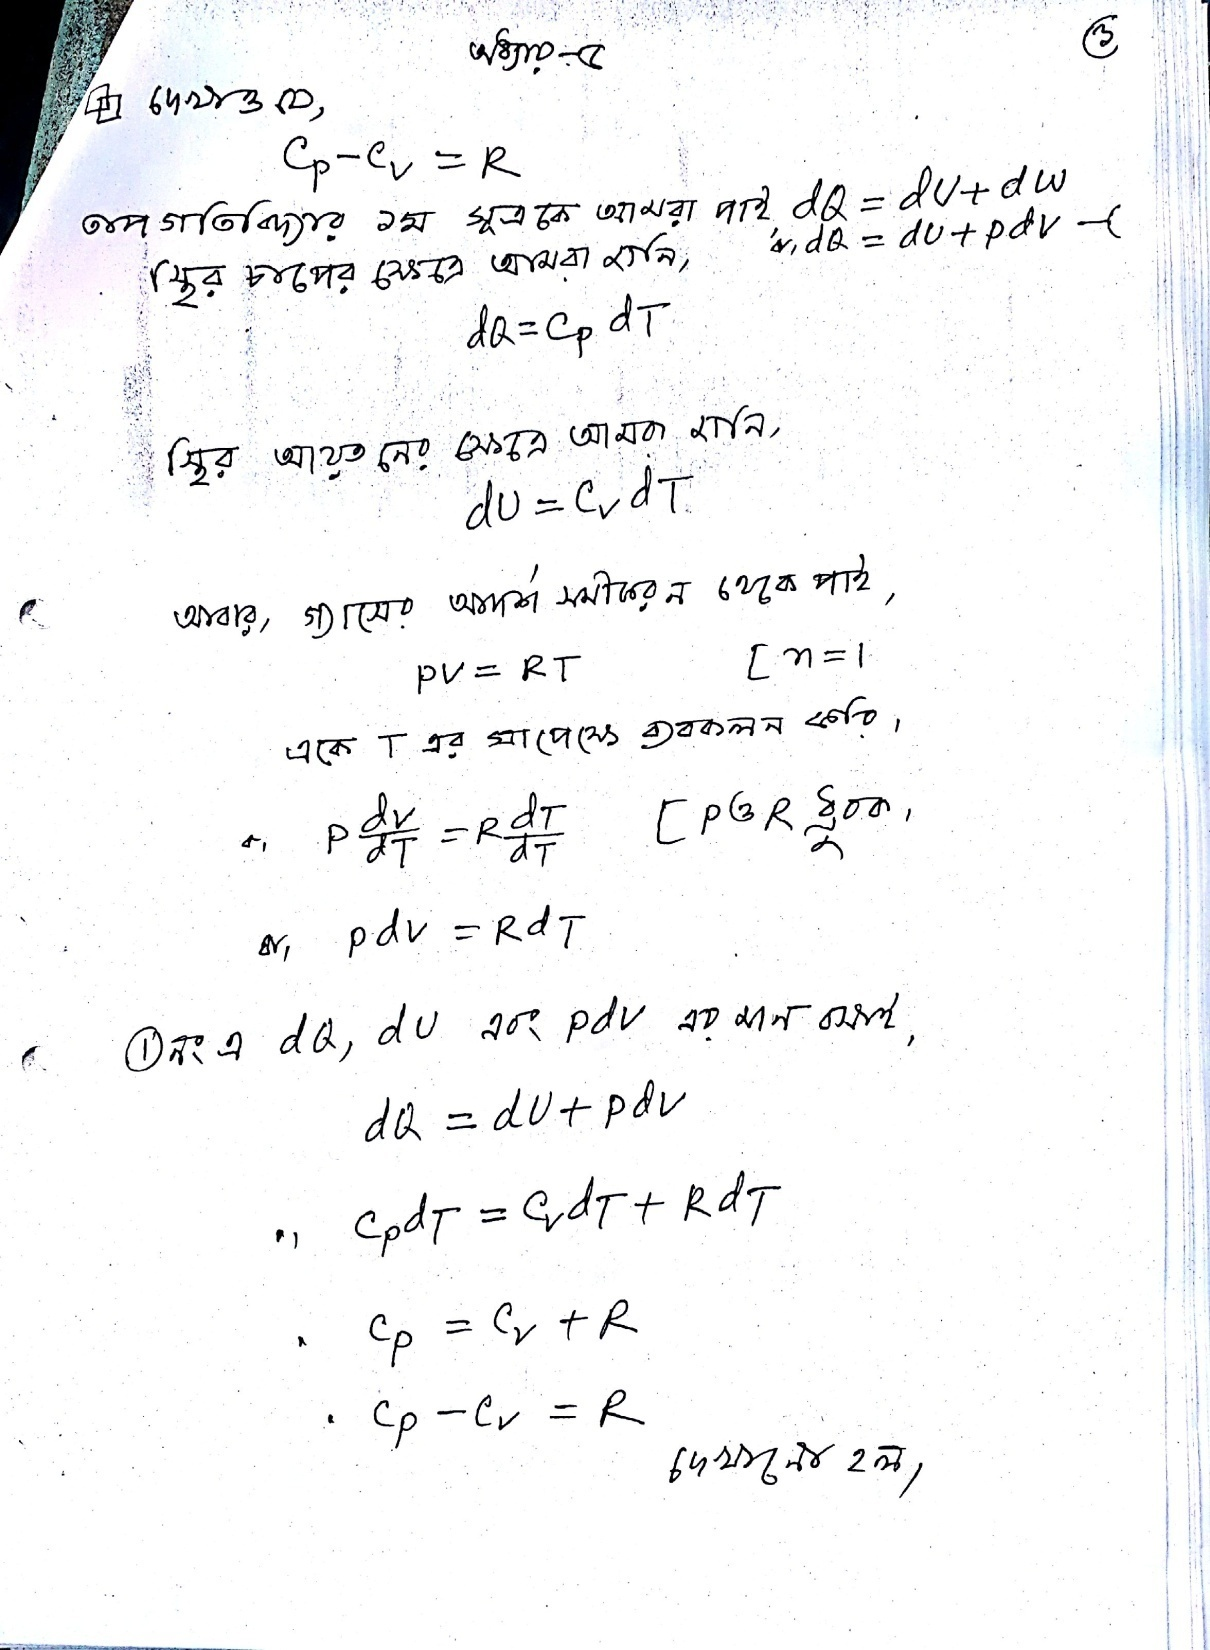 অধ্যায়-৫
③
দেখাও যে,
Cp-Cv = R
তাপ গতিবিদ্যার ১ম সূত্রকে আমরা পাই, dQ = dU + dW
বা, dQ = dU + pdV
স্থির চাপের ক্ষেত্রে আমরা জানি,
dQ = Cp dT
স্থির আয়তনের ক্ষেত্রে আমরা জানি,
dU = Cv dT
আবার, গ্যাসের আদর্শ সমীকরন থেকে পাই,
PV = RT [n=1
একে T এর সাপেক্ষে ব্যবকলন করি,
বা, P dV/dT = R dT/dT [P ও R ধ্রুবক,
বা, pdv = RdT
① নং এ dQ, dU এবং pdV এর মান বসাই,
dQ = dU + pdv
বা, CpdT = CvdT + RdT
Cp = Cv + R
Cp - Cv = R
দেখানো হল,